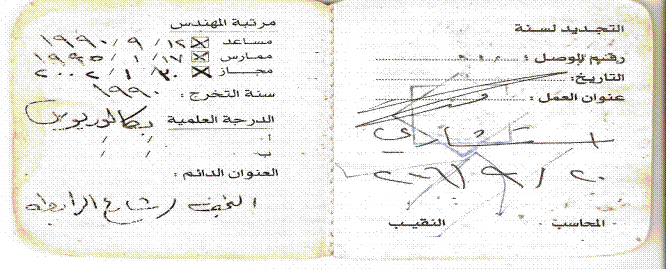 التجديد لسنة
رقم الوصل :
التاريخ:
عنوان العمل :
استشاري
٢٠ / ٩ / ٢٠٠٦
المحاسب
النقيب
مرتبة المهندس
مساعد ☒ ١٢ / ٩ / ١٩٩٠
ممارس ☒ ١٧ / ١ / ١٩٩٥
مجاز ☒ ٣٠ / ١ / ٢٠٠٢
سنة التخرج : ١٩٩٠
الدرجة العلمية بكالوريوس
أ-
ب-
العنوان الدائم :
النجف / شارع الرابطه